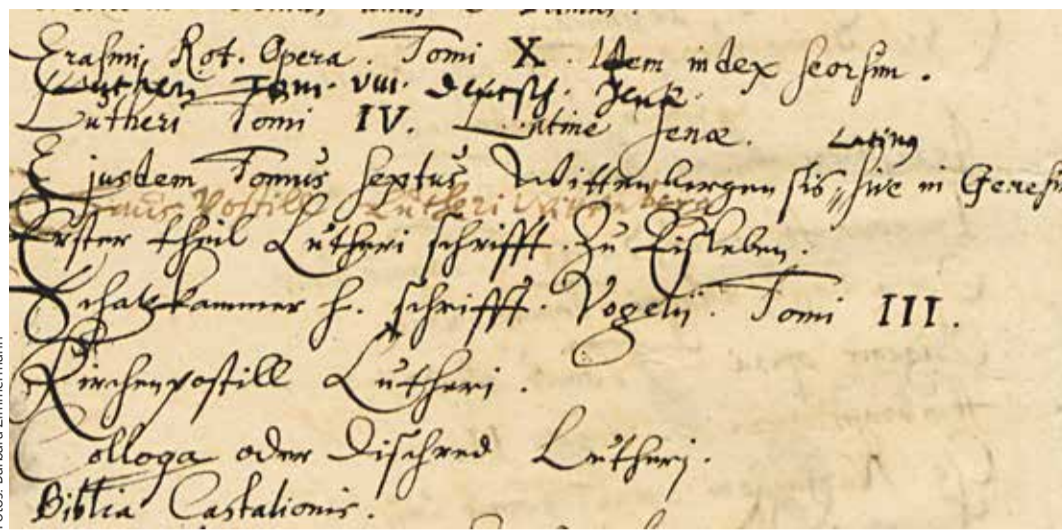 Erasmi Rot. Opera. Tomi X. Idem index seorsim.
Tom. VIII. Deutsch. Jenae.
Lutheri Tomi IV. Latine Jenae.
Latinus
Ejusdem Tomus septus Wittenbergensis, sive in Genesin
Postill Lutheri
Erster theil Lutheri schrifft. Zu Eisleben.
Schatzkammer h. schrifft. Vogelii. Tomi III.
Kirchenpostill Lutheri.
Colloqa oder Dischred Lutheri.
Biblia Castalionis.
Fotos: Barbara Zimmermann